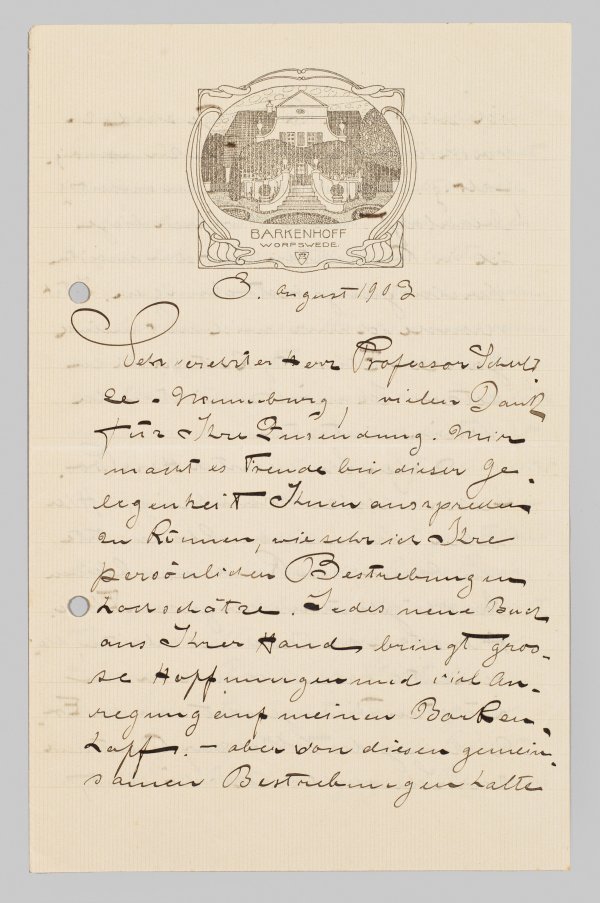 BARKENHOFF
WORPSWEDE.
3. August 1903
Sehr verehrter Herr Professor Schult
ze-Naumburg, vielen Dank
für Ihre Zusendung. Mir
macht es Freude bei dieser Ge-
legenheit Ihnen aussprechen
zu können, wie sehr ich Ihre
persönlichen Bestrebungen
hochschätze. Jedes neue Buch
aus Ihrer Hand bringt gros-
se Hoffnungen und viel An-
regung auf meinen Barken-
hoff. – aber von diesen gemein-
samen Bestrebungen hatte